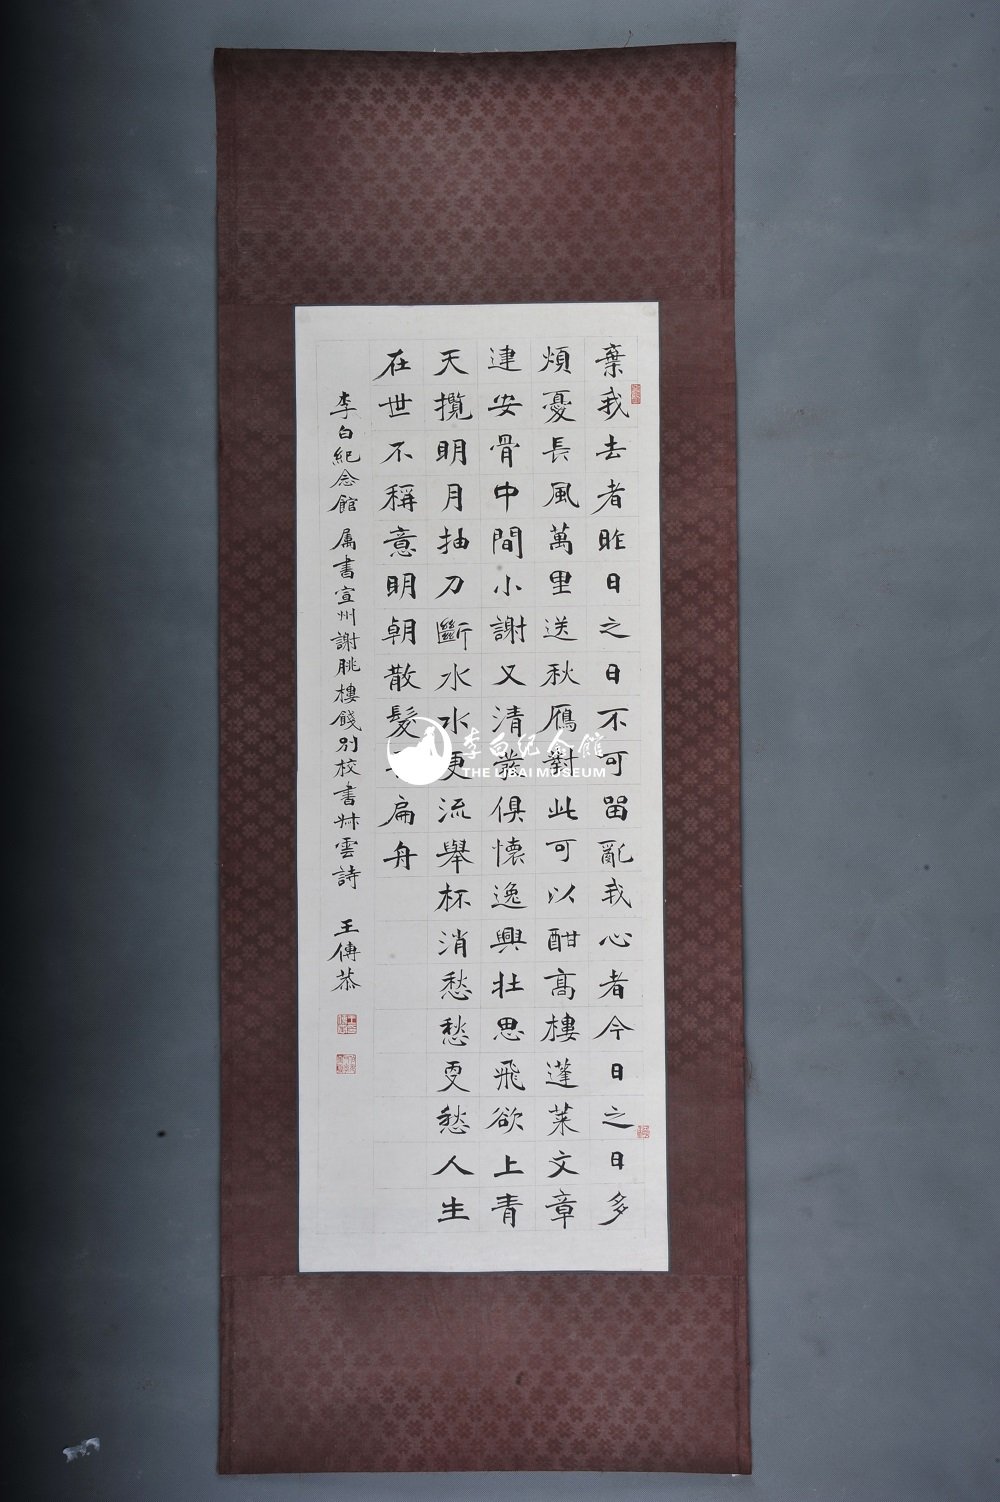 棄我去者昨日之日不可留亂我心者今日之日多
煩憂長風萬里送秋鴈對此可以酣高樓蓬萊文章
建安骨中間小謝又清發俱懷逸興壯思飛欲上青
天攬明月抽刀斷水水更流舉杯消愁愁更愁人生
在世不稱意明朝散髮弄扁舟
李白紀念館 属書宣州謝朓樓餞別校書叔雲詩 王傳恭
李白纪念館
THE LIBAI MUSEUM